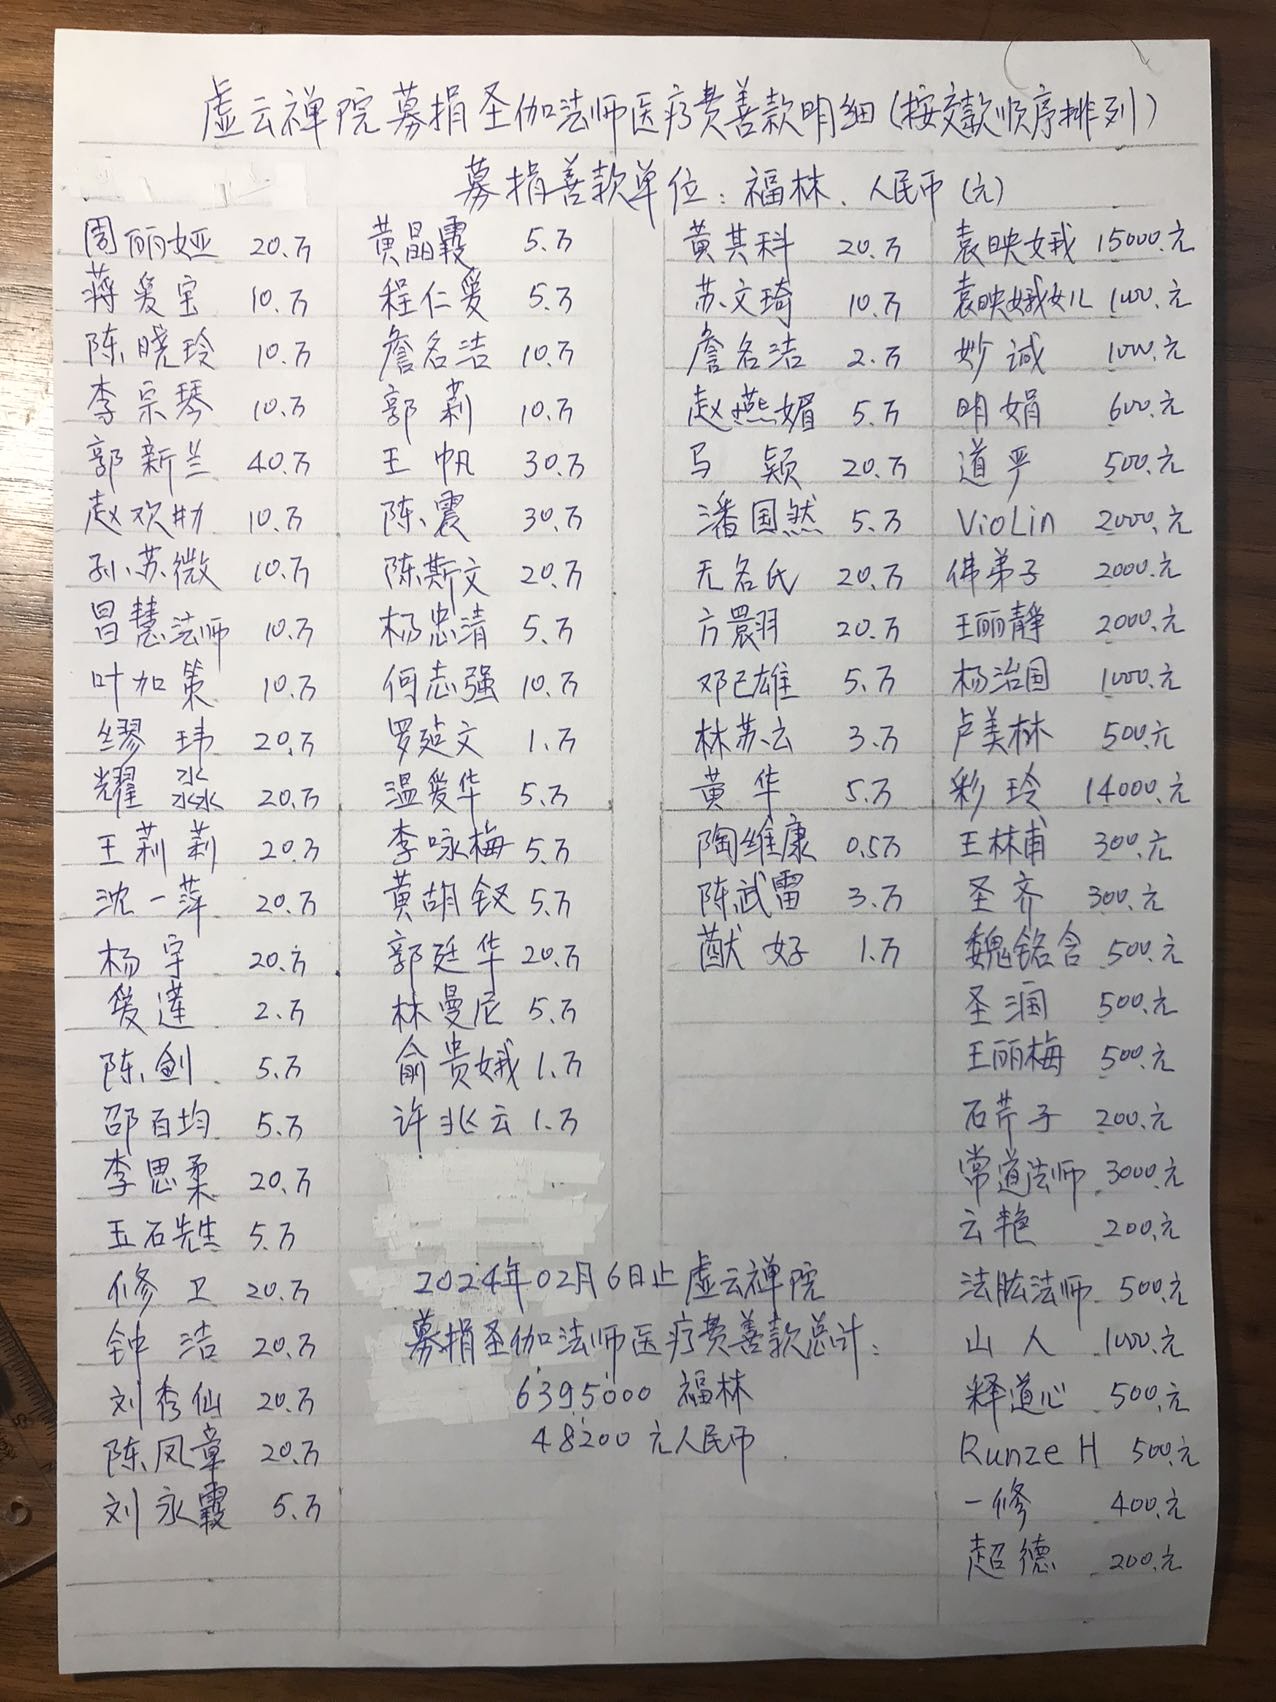 虚云禅院募捐圣伽法师医疗费善款明细(按交款顺序排列)
募捐善款单位:福林、人民币(元)
周丽娅 20.万
蒋爱宝 10.万
陈晓玲 10.万
李宗琴 10.万
郭新兰 40.万
赵欢 10.万
孙苏微 10.万
昌慧法师 10.万
叶加策 10.万
缪玮 20.万
耀淼 20.万
王莉莉 20.万
沈一萍 20.万
杨宇 20.万
爱莲 2.万
陈剑 5.万
邵百均 5.万
李思柔 20.万
玉石先生 5.万
修卫 20.万
钟洁 20.万
刘秀仙 20.万
陈凤章 20.万
刘永霞 5.万
黄晶霞 5.万
程仁爱 5.万
詹名洁 10.万
郭莉 10.万
王帆 30.万
陈震 30.万
陈斯文 20.万
杨忠清 5.万
何志强 10.万
罗延文 1.万
温爱华 5.万
李咏梅 5.万
黄胡钗 5.万
郭廷华 20.万
林曼尼 5.万
俞贵娥 1.万
许兆云 1.万
黄其科 20.万
苏文琦 10.万
詹名洁 2.万
赵燕媚 5.万
马颖 20.万
潘国然 5.万
无名氏 20.万
方翾羽 20.万
邓已雄 5.万
林苏云 3.万
黄华 5.万
陶维康 0.5万
陈武雷 3.万
好 1.万
袁映娥 15000.元
袁映娥女儿 1000.元
妙诚 1000.元
明娟 600.元
道平 500.元
VioLin 2000.元
佛弟子 2000.元
王丽静 2000.元
杨治国 1000.元
卢美林 500.元
彩玲 14000.元
王林甫 300.元
圣齐 300.元
魏铭含 500.元
圣润 500.元
王丽梅 500.元
石芹子 200.元
常道法师 3000.元
云艳 200.元
法肱法师 500.元
山人 1000.元
释道心 500.元
Runze H 500.元
一修 400.元
超德 200.元
2024年02月6日止虚云禅院
募捐圣伽法师医疗费善款总计:
6395000 福林
48200 元人民币